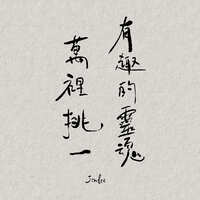 有趣的靈魂
萬裡挑一